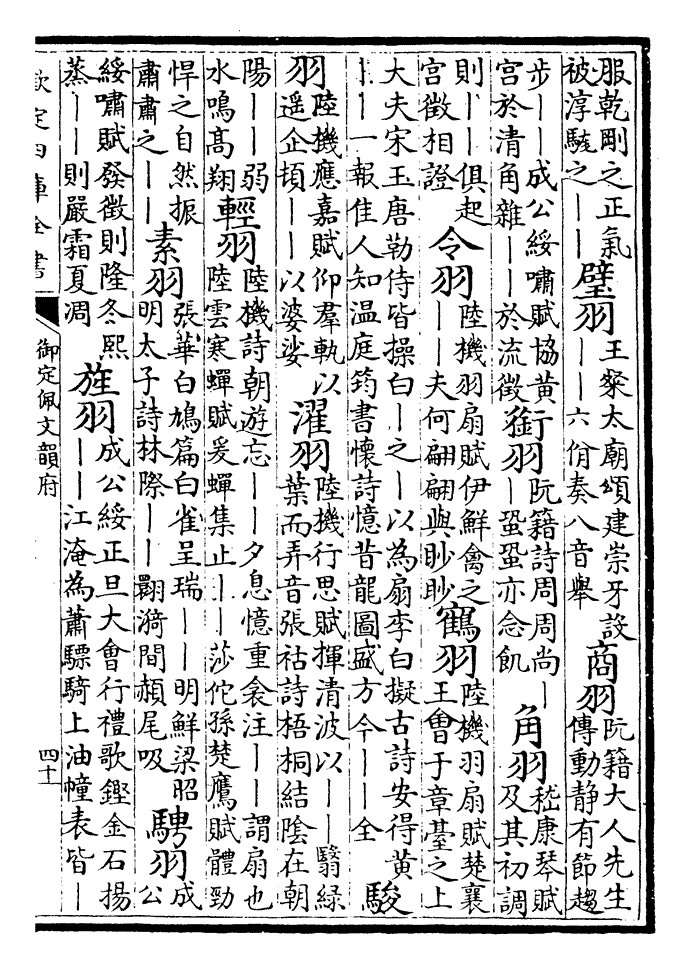 服乾剛之正氣
被淳駹之——
璧羽
王粲太廟頌建崇牙設
——六佾奏八音舉
商羽
阮籍大人先生
傳動静有節趨
步——成公綏嘯賦協黄
宮於清角雜——於流徵
銜羽
阮籍詩周周尚—
—蛩蛩亦念飢
角羽
嵇康琴賦
及其初調
則——俱起
宮徵相證
令羽
陸機羽扇賦伊鮮禽之
——夫何翩翩與眇眇
鶴羽
陸機羽扇賦楚襄
王㑹于章臺之上
大夫宋玉唐勒侍皆操白—之—以為扇李白擬古詩安得黄
——一報佳人知温庭筠書懷詩憶昔龍圖盛方今——全
駿羽
陸機應嘉賦仰羣軌以
遥企頓——以婆娑
濯羽
陸機行思賦揮清波以——翳緑
葉而弄音張祜詩梧桐結陰在朝
陽——弱
水鳴高翔
輕羽
陸機詩朝游忘——夕息憶重衾注——謂扇也
陸雲寒蟬賦爰蟬集止——莎佗孫楚鷹賦體勁
悍之自然振
肅肅之——
素羽
張華白鳩篇白雀呈瑞——明鮮梁昭
明太子詩林際——翾漪間赬尾吸
騁羽
成
公
綏嘯賦發徵則隆冬熙
蒸——則嚴霜夏凋
旌羽
成公綏正旦大會行禮歌鏗金石揚
——江淹為蕭驃騎上油幢表皆—
欽定四庫全書
御定佩文韻府
四十